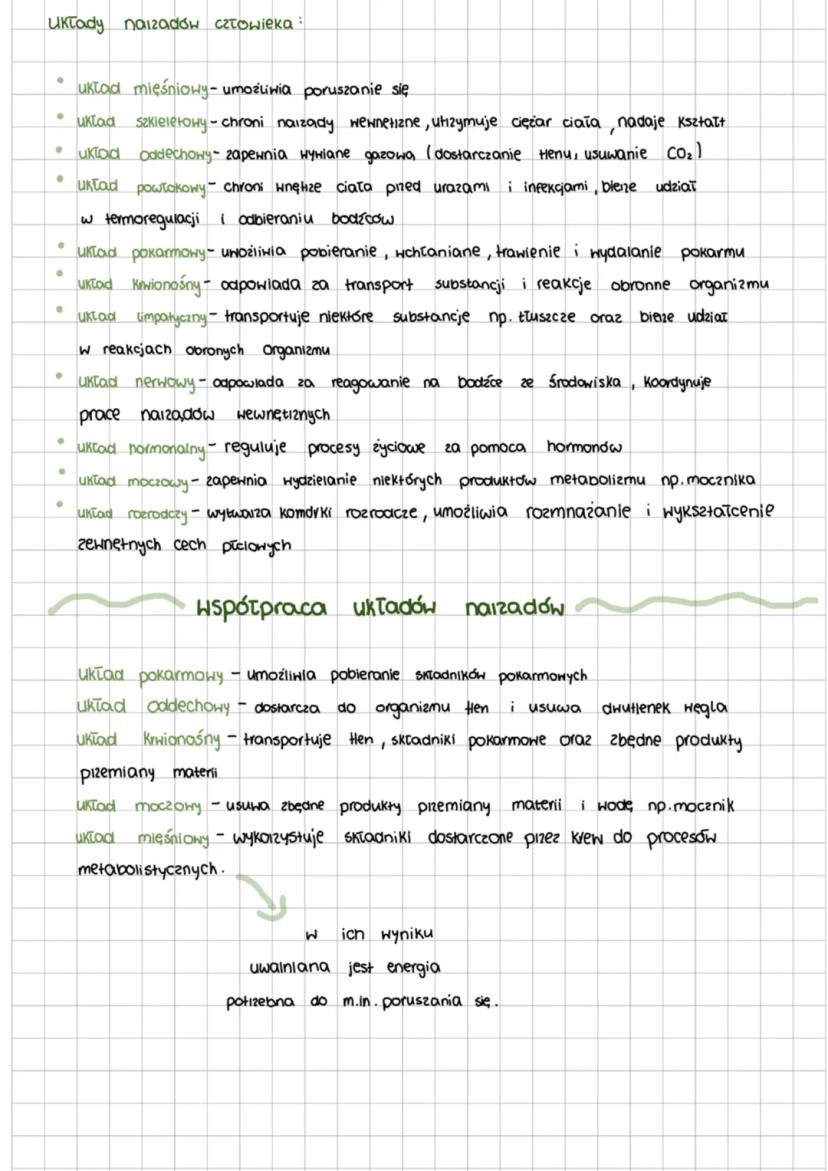 Układy narządów człowieka:
• układ mięśniowy- umożliwia poruszanie się
• układ szkieletowy- chroni narządy wewnętrzne, utrzymuje ciężar ciała, nadaje kształt
• układ oddechowy- zapewnia wymianę gazową (dostarczanie tlenu, usuwanie CO₂)
• układ powłokowy- chroni wnętrze ciała przed urazami i infekcjami, bierze udział
w termoregulacji i odbieraniu bodźców
• układ pokarmowy- umożliwia pobieranie, wchłanianie, trawienie i wydalanie pokarmu
• układ krwionośny- odpowiada za transport substancji i reakcje obronne organizmu
• układ limpatyczny- transportuje niektóre substancje np. tłuszcze oraz bierze udział
w reakcjach obronych organizmu
• układ nerwowy- odpowiada za reagowanie na bodźce ze środowiska, koordynuje
prace narządów wewnętrznych
• układ hormonalny- reguluje procesy życiowe za pomoca hormonów
• układ moczowy- zapewnia wydzielanie niektórych produktów metabolizmu np. mocznika
• układ rozrodczy- wytwarza komórki rozrodcze, umożliwia rozmnażanie i wykształcenie
zewnętrnych cech płciowych
Współpraca układów narządów
układ pokarmowy - umożliwia pobieranie składników pokarmowych
układ oddechowy - dostarcza do organizmu tlen i usuwa dwutlenek węgla
układ krwionośny - transportuje tlen, składniki pokarmowe oraz zbędne produkty
przemiany materii
układ moczowy - usuwa zbędne produkty przemiany materii i wodę np. mocznik
układ mięśniowy - wykorzystuje składniki dostarczone przez krew do procesów
metabolistycznych.
w ich wyniku
uwalniana jest energia
potrzebna do m.in. poruszania się.